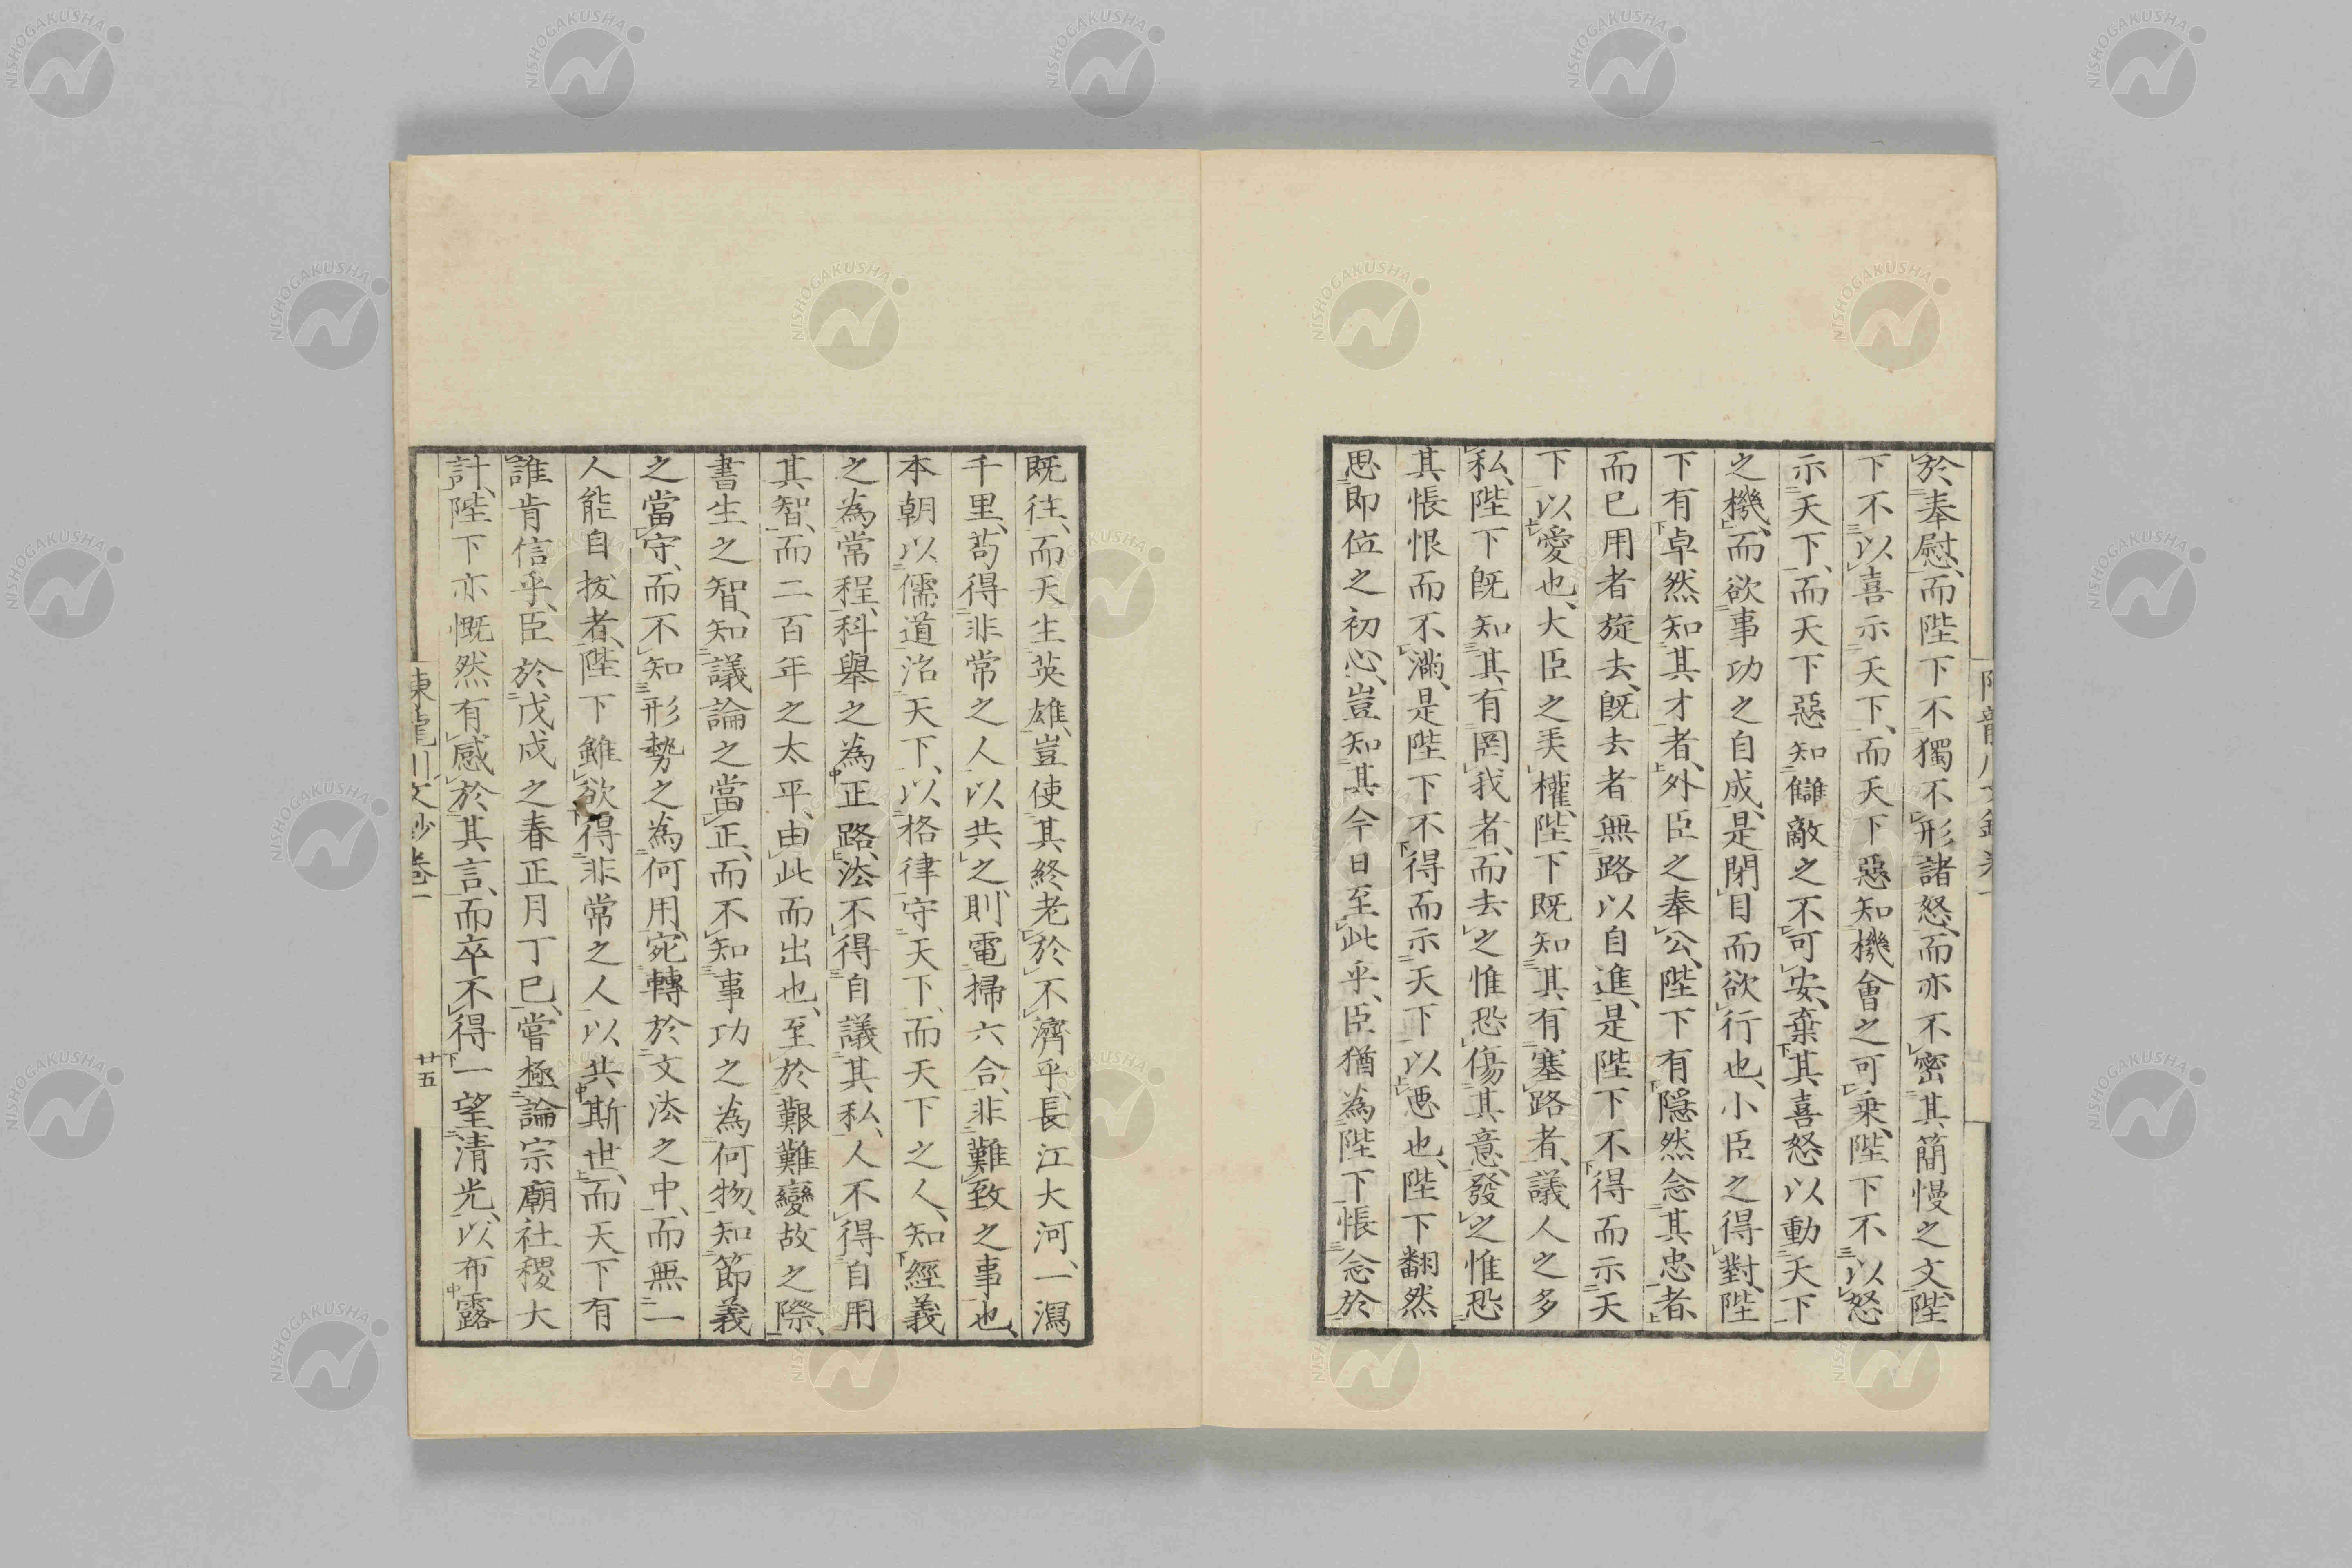 於奉慰、而陛下不獨不形諸怒、而亦不密其簡慢之文、陛
下不以喜示天下、而天下惡知機會之可乗、陛下不以怒
示天下、而天下惡知讎敵之不可安、棄其喜怒以動天下
之機、而欲事功之自成、是閉目而欲行也、小臣之得對、陛
下有卓然知其才者、外臣之奉公、陛下有隠然念其忠者、
而已用者旋去、既去者無路以自進、是陛下不得而示天
下以愛也、大臣之美權、陛下既知其有塞路者、議人之多
私、陛下既知其有罔我者、而去之惟恐傷其意、發之惟恐
其悵恨而不滿、是陛下不得而示天下以悪也、陛下翻然
思即位之初心、豈知其今日至此乎、臣猶為陛下悵念於
既往、而天生英雄、豈使其終老於不濟乎、長江大河、一瀉
千里、苟得非常之人以共之、則電掃六合、非難致之事也、
本朝以儒道治天下、以格律守天下、而天下之人、知經義
之為常程、科舉之為正路、法不得自議其私、人不得自用
其智、而二百年之太平、由此而出也、至於艱難變故之際、
書生之智、知議論之當正、而不知事功之為何物、知節義
之當守、而不知形勢之為何用、宛轉於文法之中、而無一
人能自拔者、陛下雖欲得非常之人以共斯世、而天下有
誰肯信乎、臣於戊戌之春正月丁巳、嘗極論宗廟社稷大
計、陛下亦慨然有感於其言、而卒不得一望清光、以布露
陳龍川文鈔卷一
廿五